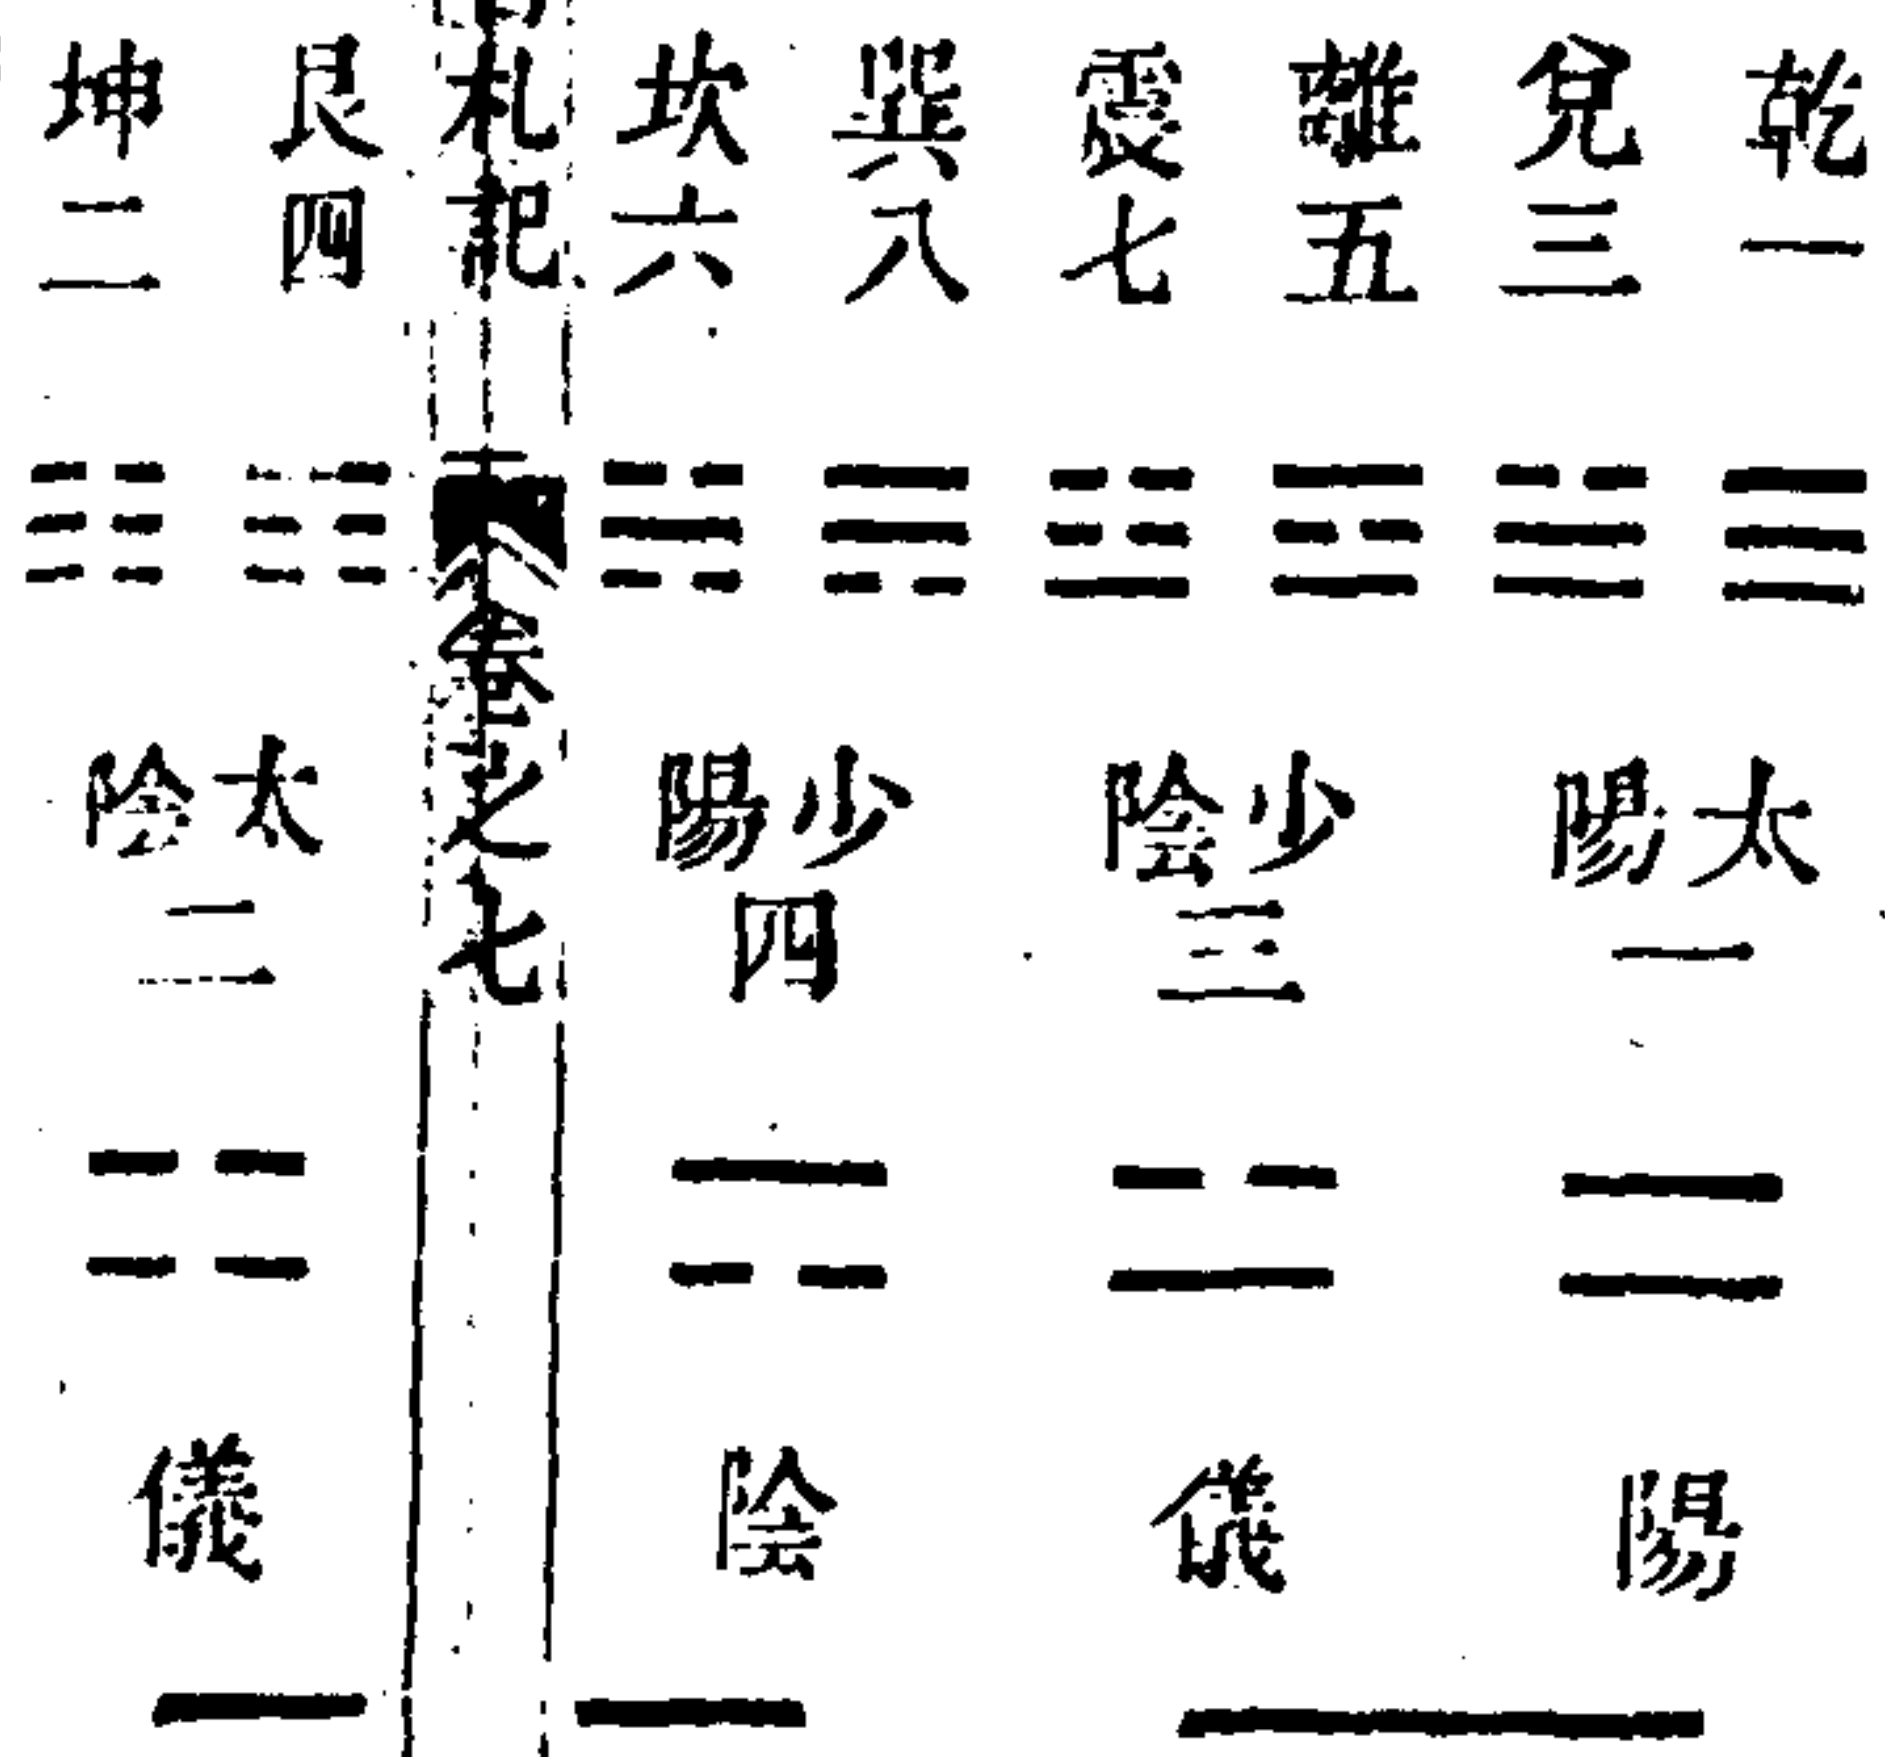 乾一
兌三
離五
震七
巽八
坎六
札記
卷之七
艮四
坤二
太陽一
少陰三
少陽四
太陰二
陽儀
陰儀